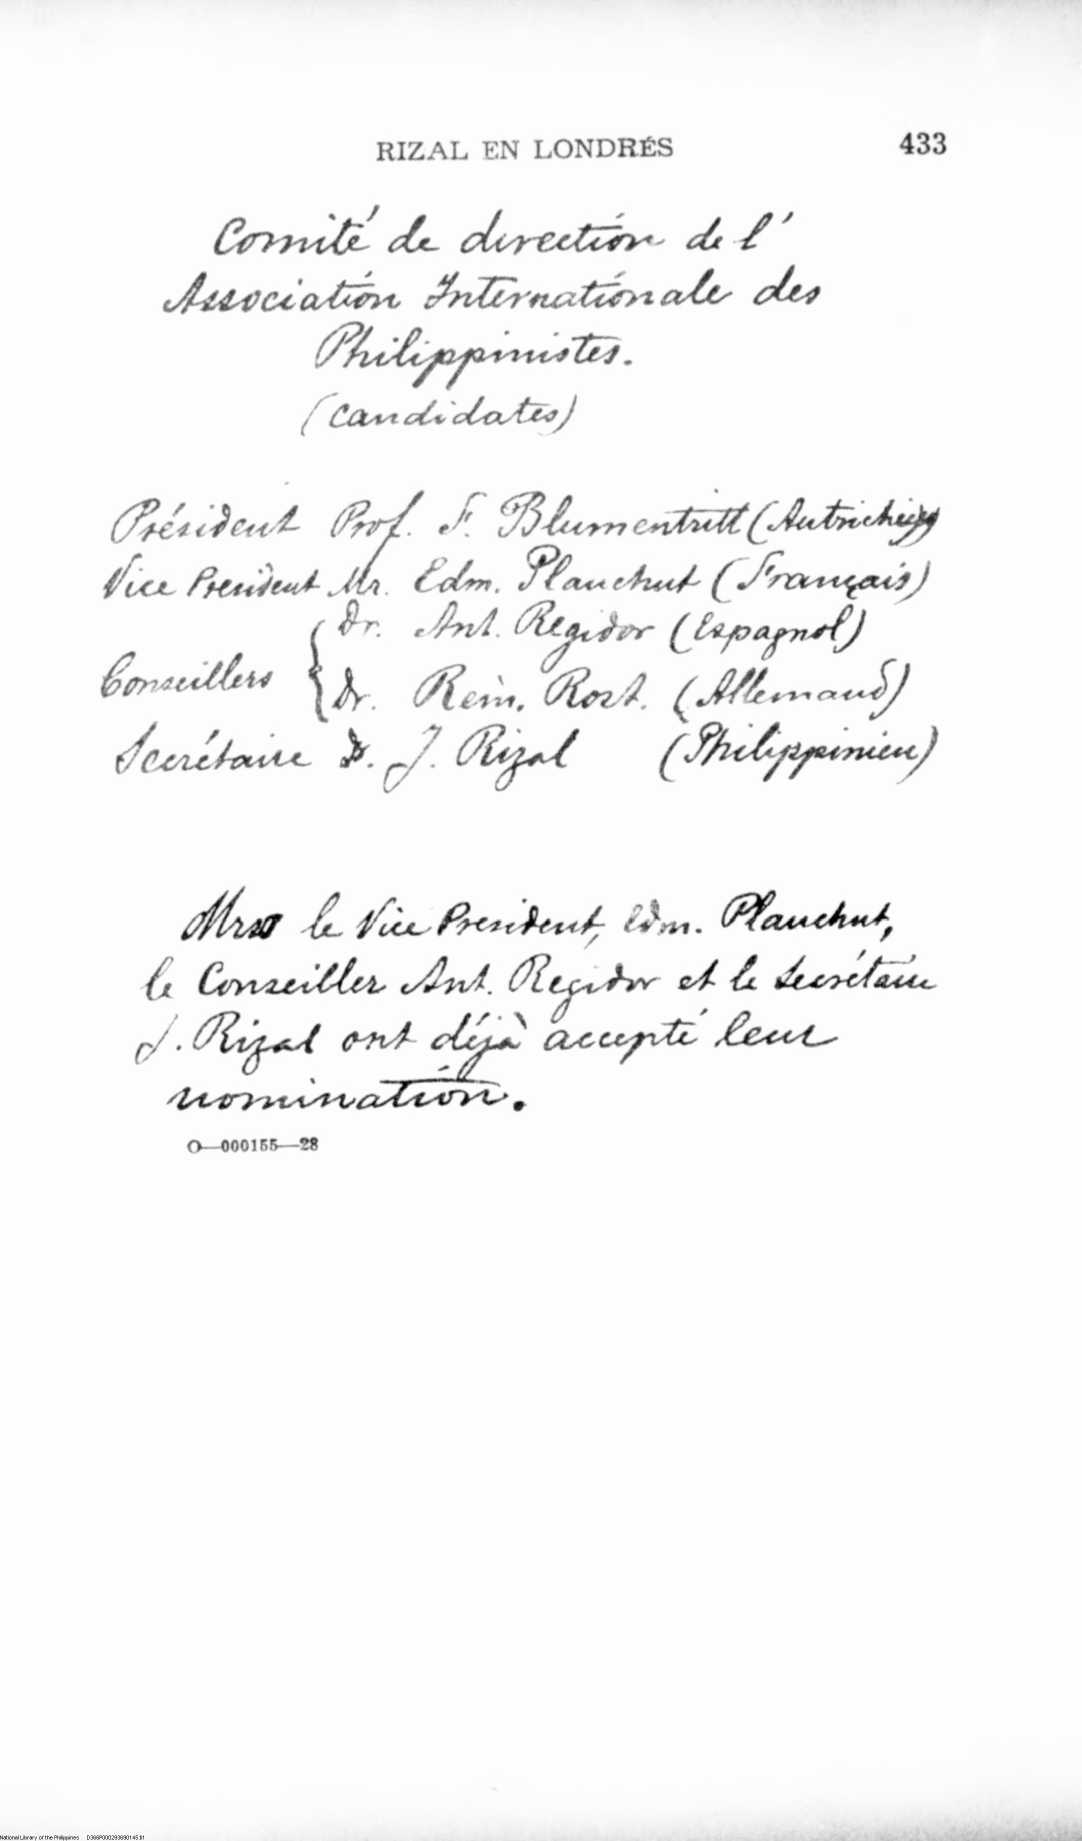 RIZAL EN LONDRÉS 433
Comité de direction de l'
Association Internationale des
Philippinistes.
(Candidates)
Président Prof. F. Blumentritt (Autrichien)
Vice President Mr. Edm. Plauchut (Français)
Dr. Ant. Regidor (Espagnol)
Conseillers
Dr. Rein. Rost. (Allemand)
Secrétaire Dr. J. Rizal (Philippinien)
Mrs le Vice President, Edm. Plauchut,
le Conseiller Ant. Regidor et le Secrétaire
J. Rizal ont déjà accepté leur
nomination.
O—000155—28
National Library of the Philippines